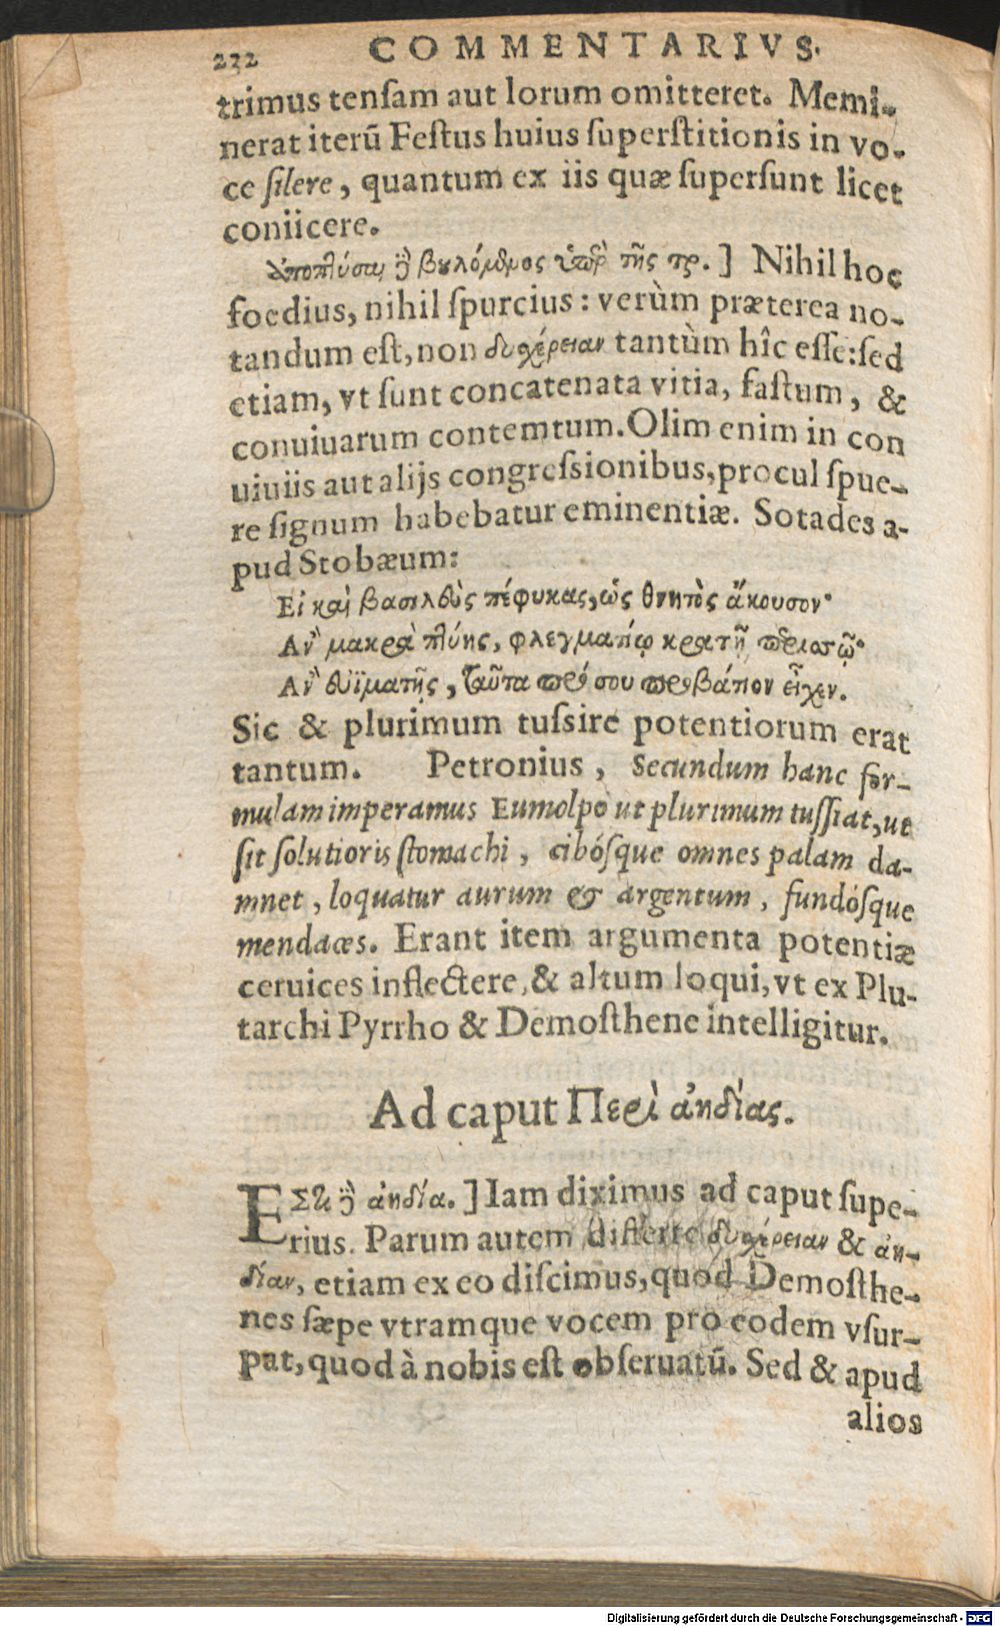 232 COMMENTARIVS.
trimus tensam aut lorum omitteret. Memi-
nerat iterũ Festus huius superstitionis in vo-
ce silere, quantum ex iis quæ supersunt licet
coniicere.
Ἀποπτύσαι δὲ βουλόμενος ὑπὲρ τῆς τρ.] Nihil hoc
foedius, nihil spurcius: verùm præterea no-
tandum est, non δυχέρειαν tantùm hîc esse: sed
etiam, vt sunt concatenata vitia, fastum, &
conuiuarum contemtum. Olim enim in con
uiuiis aut alijs congressionibus, procul spue-
re signum habebatur eminentiæ. Sotades a-
pud Stobæum:
Εἰ καὶ βασιλεὺς πέφυκας, ὡς θνητὸς ἄκουσον·
Ἂν μακρὰ πτύῃς, φλεγματίῳ κρατῇ περισσῷ·
Ἂν εὐϊματῇς, ταῦτα πρό σου προβάτιον εἶχεν.
Sic & plurimum tussire potentiorum erat
tantum. Petronius, Secundum hanc for-
mulam imperamus Eumolpo ut plurimum tussiat, ut
sit solutioris stomachi, cibósque omnes palam da-
mnet, loquatur aurum & argentum, fundósque
mendaces. Erant item argumenta potentiæ
ceruices inflectere, & altum loqui, vt ex Plu-
tarchi Pyrrho & Demosthene intelligitur.
Ad caput Περὶ ἀηδίας.
ΕΣτι δὲ ἀηδία.] Iam diximus ad caput supe-
rius. Parum autem differre δυχέρειαν & ἀη-
δίαν, etiam ex eo discimus, quod Demosthe-
nes sæpe vtramque vocem pro eodem vsur-
pat, quod à nobis est obseruatũ. Sed & apud
alios
Digitalisierung gefördert durch die Deutsche Forschungsgemeinschaft - DFG